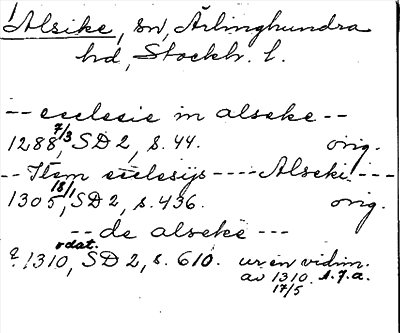 Alsike, sn, Ärlinghundra
hd, Stockh. l.
-- ecclesie in alseke --
1288 7/3, SD 2, s. 44. orig.
-- Item ecclesijs ---- Alseki ---
1305 18/1, SD 2, s. 436. orig.
-- de alseke ---
? 1310 odat., SD 2, s. 610. ur en vidim.
av 1310 17/5 s.f.a.